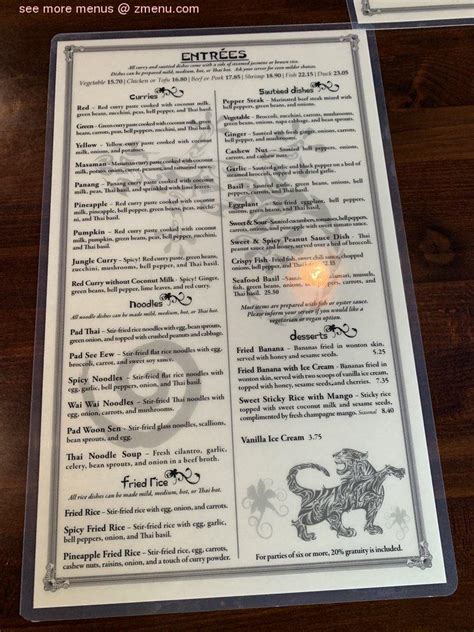 see more menus @ zmenu.com
ENTRÉES
All curry and sautéed dishes come with a side of steamed jasmine or brown rice.
Dishes can be prepared mild, medium, hot, or Thai hot. Ask your server for even milder choices.
Vegetable 15.70 | Chicken or Tofu 16.80 | Beef or Pork 17.85 | Shrimp 18.90 | Fish 22.15 | Duck 23.05
Curries
Red – Red curry paste cooked with coconut milk,
green beans, zucchini, peas, bell pepper, and Thai basil.
Green – Green curry paste cooked with coconut milk, green
beans, carrots, peas, bell peppers, zucchini, and Thai basil.
Yellow – Yellow curry paste cooked with coconut
milk, onions, and potatoes.
Massaman – Massaman curry paste with coconut
milk, potatoes, carrots, and tamarind sauce.
Panang – Panang curry paste cooked with coconut
milk, peas, Thai basil, and sprinkled with lime leaves.
Pineapple – Red curry paste cooked with coconut
milk, pineapple, bell pepper, green beans, peas, zucchini
and Thai basil.
Pumpkin – Red curry paste cooked with coconut
milk, pumpkin, green beans, bell pepper, zucchini,
and Thai Basil.
Jungle Curry – Spicy! Red curry paste, green beans,
zucchini, mushrooms, bell pepper, and Thai basil.
Red Curry without Coconut Milk – Spicy! Ginger,
green beans, bell pepper, lime leaves, and red curry.
Noodles
All noodle dishes can be made mild, medium, hot, or Thai hot.
Pad Thai – Stir-fried rice noodles with egg, bean sprouts,
green onion, and topped with crushed peanuts and cabbage.
Pad See Eew – Stir-fried flat rice noodles with egg,
broccoli, carrot, and sweet soy sauce.
Spicy Noodles – Stir-fried flat rice noodles with
egg, garlic, bell peppers, onion, and Thai basil.
Wai Wai Noodles – Stir-fried clear noodles with
egg, onion, carrots, and mushrooms.
Pad Woon Sen – Stir-fried glass noodles, scallions,
bean sprouts, and egg.
Thai Noodle Soup – Fresh cilantro, garlic,
celery, bean sprouts, and onion in a beef broth.
Fried Rice
All rice dishes can be made mild, medium, hot, or Thai hot.
Fried Rice – Stir-fried rice with egg, onion, and carrots.
Spicy Fried Rice – Stir-fried rice with egg, garlic,
bell peppers, onion, and Thai basil.
Pineapple Fried Rice – Stir-fried rice, egg, carrots,
cashew nuts, raisins, onion, and a touch of curry powder.
Sautéed dishes
Pepper Steak – Marinated beef steak mixed with
bell peppers, green beans, and onions.
Vegetable – Broccoli, zucchini, carrots, mushrooms,
green beans, onions, napa cabbage, and bean sprouts.
Ginger – Sautéed with fresh ginger, onions, carrots,
bell pepper, and mushrooms.
Cashew Nut – Sautéed with bell pepper, onions, carrots,
and cashew nuts.
Garlic – Sautéed garlic and black pepper on a bed of
steamed broccoli, topped with dried garlic.
Basil – Sautéed garlic, green beans, onions, bell
peppers, carrots, and Thai basil.
Eggplant – Stir fried eggplant, bell peppers,
onions, and Thai basil.
Sweet & Sour – Sautéed cucumbers, tomatoes, bell peppers,
carrots, onions, and pineapple with sweet tomato sauce.
Sweet & Spicy Peanut Sauce Dish – Thai
peanut sauce and honey, served over a bed of broccoli.
Crispy Fish – Fried fish, sweet chili sauce, chopped
onions, bell pepper, and Thai
Seafood Basil – mussels,
fish, green beans, onions, bell peppers, carrots, and
Thai basil. 25.50
Most items are prepared with fish or oyster sauce.
Please inform your server if you would like a
vegetarian or vegan option.
desserts
Fried Banana – Bananas fried in wonton skin,
served with honey and sesame seeds. 5.25
Fried Banana with Ice Cream – Bananas fried in
wonton skin, served with two scoops of vanilla ice cream,
topped with honey, sesame seeds, and cherries. 7.35
Sweet Sticky Rice with Mango – Sticky rice
topped with sweet coconut milk and sesame seeds,
complimented by fresh champagne mango. Seasonal 8.40
Vanilla Ice Cream 3.75
For parties of six or more, 20% gratuity is included.